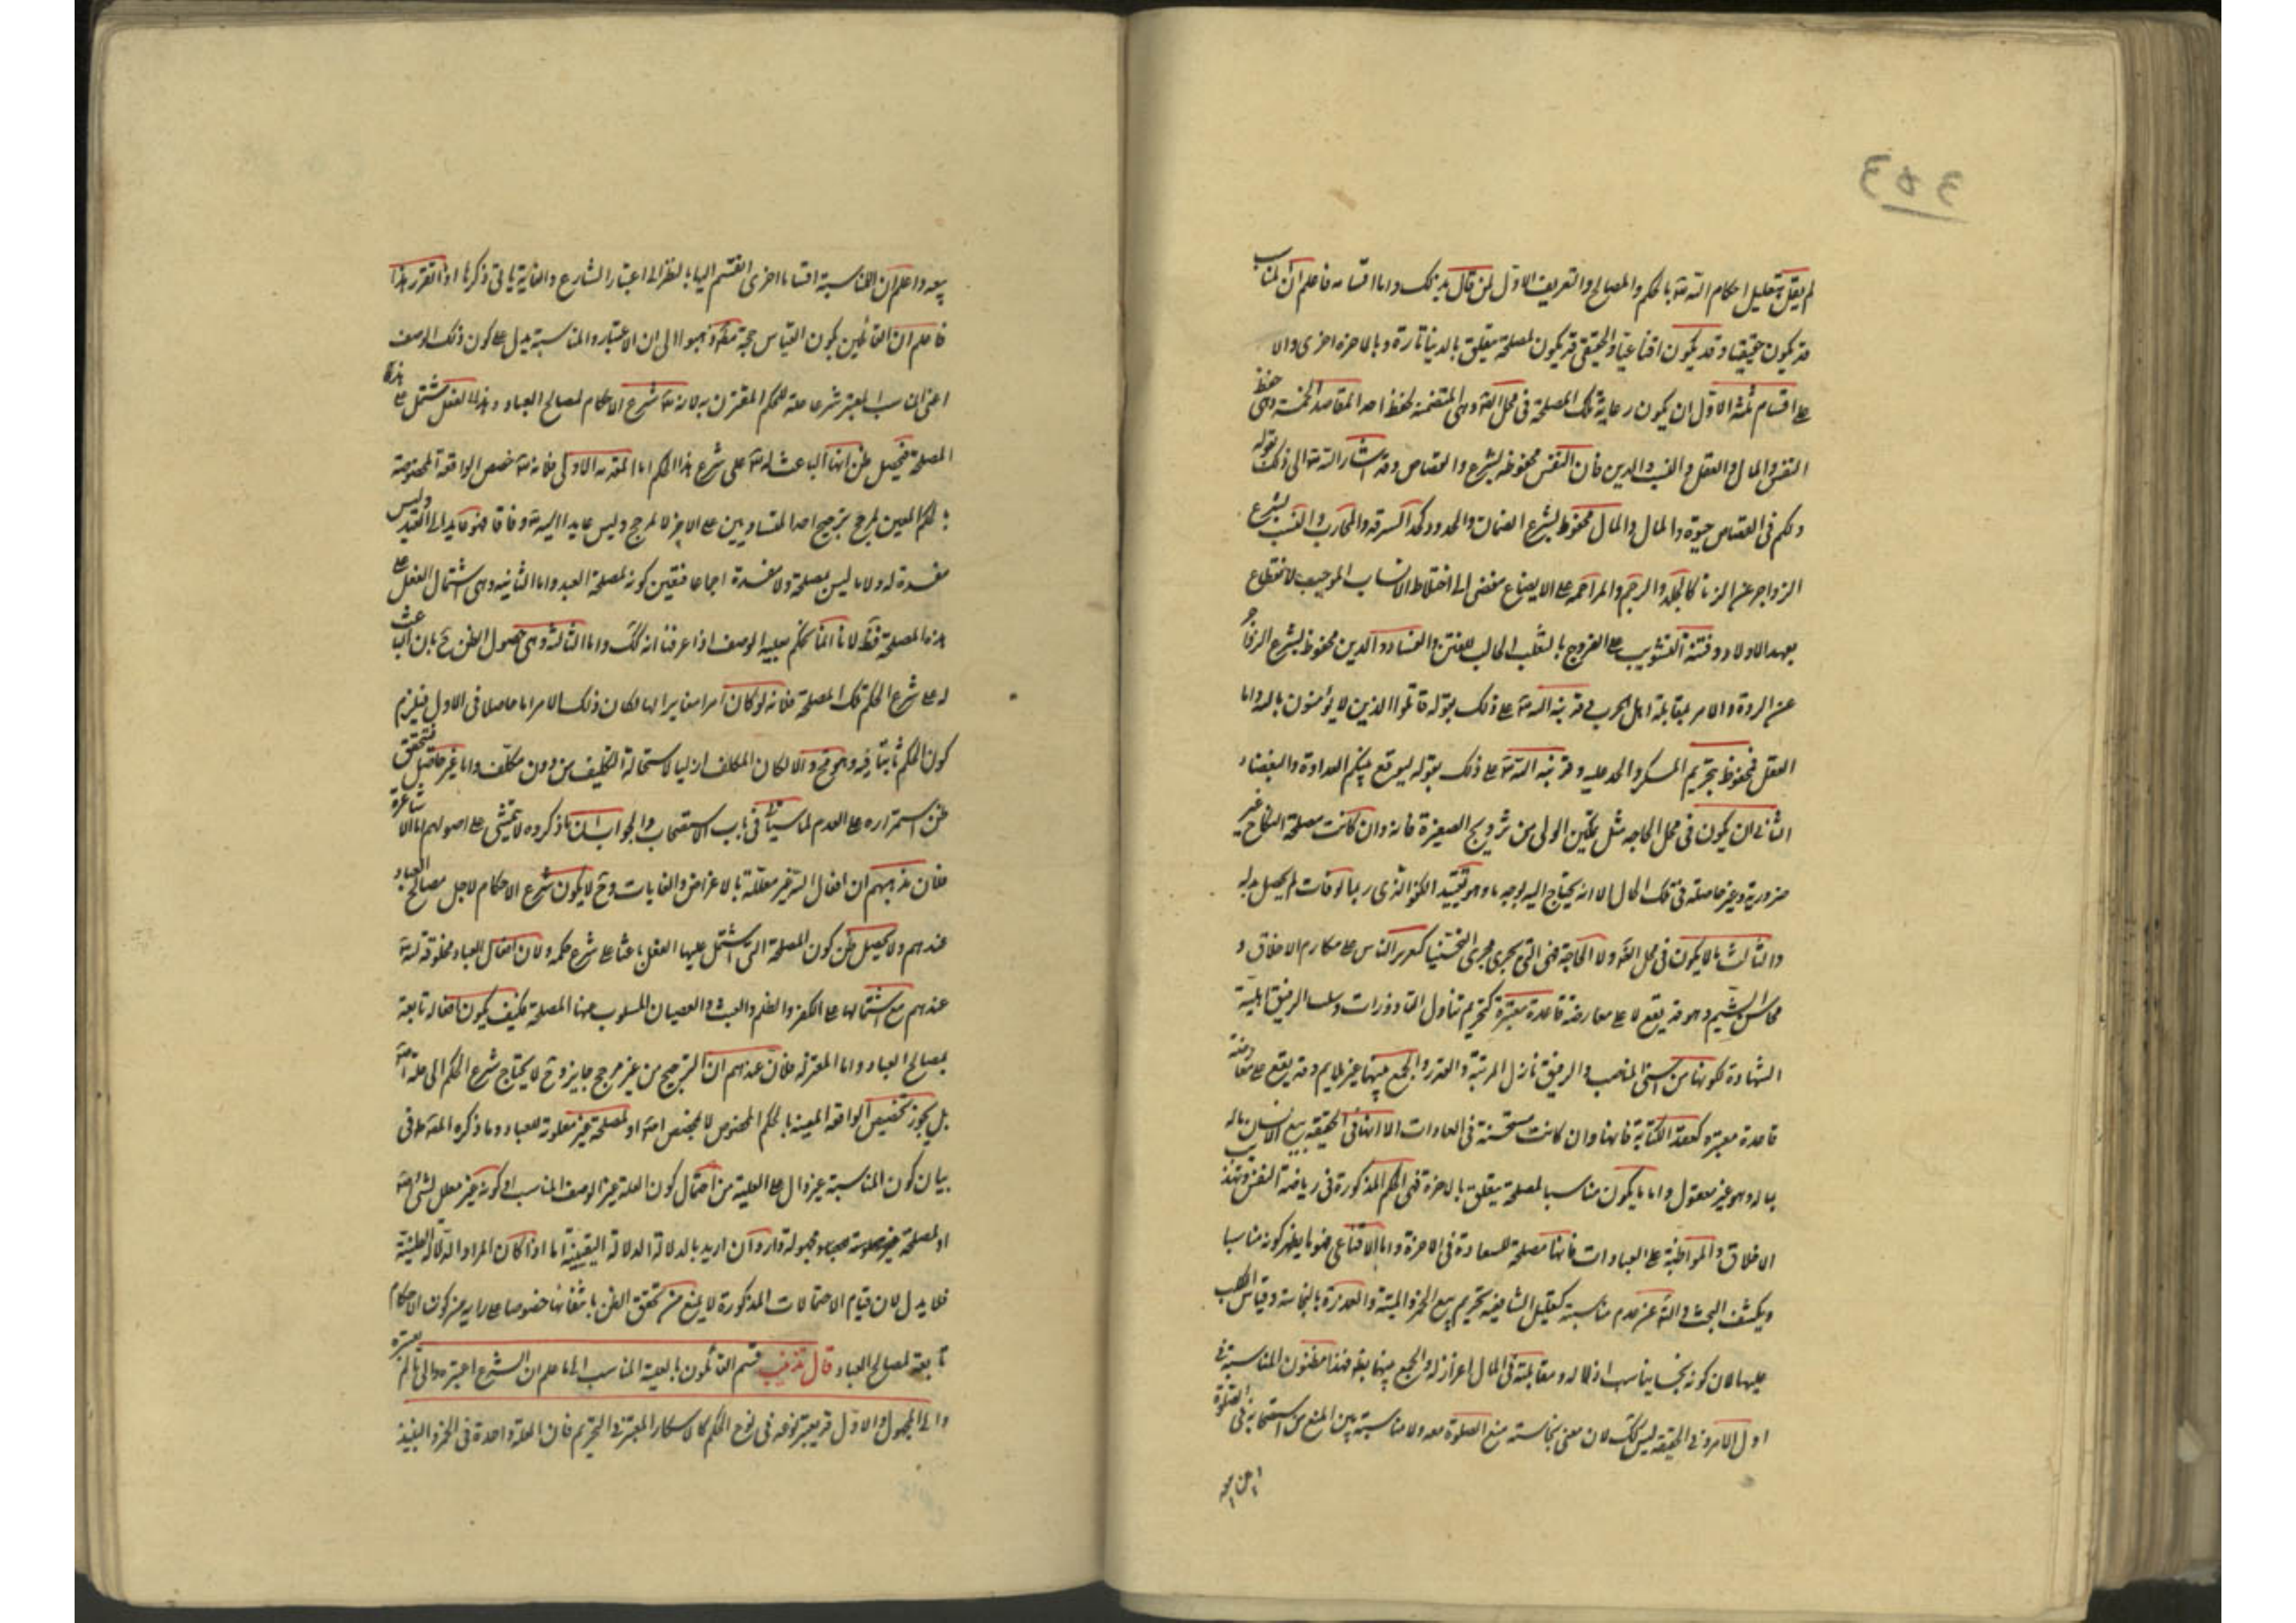 ٤٥٤
لم يقل بتعليل احكام الله تع بالحكم والمصالح والتعريف الاول لمن قال بذلك واما اقسامه فاعلم ان المناسب
قد يكون حقيقيا وقد يكون اقناعيا والحقيقي قد يكون لمصلحة يتعلق بالدنيا تارة وبالاخرة اخرى والا
على اقسام ثلثة الاول ان يكون رعاية تلك المصلحة في محل الضرورة وهي المتضمنة لحفظ احد المقاصد الخمسة وهي حفظ
النفس والمال والعقل والنسب والدين فان النفس محفوظة بشرع والقصاص وقد اشار الله تع الى ذلك بقوله
ولكم في القصاص حيوة والمال والمال محفوظ بشرع الضمان والحدود كحد السرقة والمحارب والنسب بشرع
الزواجر عن الزنا كالجلد والرجم والمزاحمة على الابضاع مفضى الى اختلاط الانساب الموجب لانقطاع
بعهد الاولاد وفتنة التشويب على الفروج بالتغلب الجالب للفتن والفساد والدين محفوظ بشرع الزواجر
عن الردة والامر بمقاتلة اهل الحرب وقد نبه الله تع على ذلك بقوله قاتلوا الذين لا يؤمنون بالله واما
العقل فمحفوظ بتحريم المسكر والحد عليه وقد نبه الله تع على ذلك بقوله ليوقع بينكم العداوة والبغضاء
الثاني ان يكون في محل الحاجة مثل تمكين الولى من تزويج الصغيرة فانه وان كانت مصلحة النكاح غير
ضرورية وغير حاصلة في تلك الحال الا انه يحتاج اليه لوجه ما وهو تقييد الكفو الذى ربما لو فات لم يحصل بدله
والثالث ما لا يكون في محل الضرورة ولا الحاجة فهى التى تجرى مجرى التحسينات كتعزير الناس على مكارم الاخلاق و
محاسن الشيم وهو قد يقع لا على معارضة قاعدة معتبرة كتحريم تناول القاذورات وسلب الرقيق اهلية
الشهادة لكونها من اسنى المناصب والرقيق نازل المرتبة والقدر والجمع بينهما غير ملايم وقد يقع على معارضة
قاعدة معتبرة كعقد الكتابة فانها وان كانت مستحسنة في العادات الا انها في الحقيقة بيع الانسان ماله
بماله وهو غير معقول واما ما يكون مناسبا لمصلحة يتعلق بالاخرة فهى الحكم المذكورة في رياضة النفس وتهذيب
الاخلاق والمواظبة على العبادات فانها مصلحة للسعادة في الاخرة واما الاقناعى فهو ما يظهر كونه مناسبا
ويكشف البحث والتأمل عن عدم مناسبته كتعليل الشافعية تحريم بيع الخمر والميتة والعذرة بالنجاسة وقياس الكلب
عليها لان كونه نجسا يناسب اذلاله ومقابلته في المال اعزاز له والجمع بينهما فهذا مظنون المناسبة في
اول الامر وفي الحقيقة ليس كك لان معنى نجاسته منع الصلوة معه ولا مناسبة بين المنع من استصحابه في الصلوة
بيعه واعلم ان للمناسبة اقساما اخرى انقسم اليها بالنظر الى اعتبار الشارع والغاية ياتى ذكرها اذا تقرر هذا
فاعلم ان القائلين بكون القياس حجة ذهبوا الى ان الاعتبار والمناسبة يدل على كون ذلك الوصف
اعنى المناسب المعتبر شرعا علة للحكم المقترن به لانه تع شرع الاحكام لمصالح العباد وهذا الفعل مشتمل على هذه
المصلحة فيحصل ظن انها الباعث له تع على شرع هذا الحكم اما المقدمة الاولى فلانه تع خصص الواقعة المخصوصة
بالحكم المعين لمرجح ترجيح احد المتساويين على الاخر لا لمرجح وليس عايدا اليه تع وفاقا فهو عايد الى العبد وليس
مفسدة له ولا ما ليس بمصلحة ولا مفسدة اجماعا فتعين كونه لمصلحة العبد واما الثانية وهى اشتمال الفعل على
هذه المصلحة فظ لانا انما نحكم بعلية الوصف اذا عرفنا انه كك واما الثالثة وهى حصول الظن ح بان الباعث
له على شرع الحكم تلك المصلحة فلانه لو كان امرا مغايرا لها لكان ذلك الامر اما حاصلا في الاول فيلزم
كون الحكم ثابتا فيه وهو مح والا لكان المكلف ازليا لاستحالة التكليف من دون مكلف واما غير حاصل فتحقق
ظن استمراره على العدم لما سيأتى في باب الاستصحاب والجواب ان ما ذكروه لا يتمشى على اصولهم اما الاشاعرة
فلان مذهبهم ان افعال الله غير معللة بالاعراض والغايات وح لا يكون شرع الاحكام لاجل مصالح العباد
عندهم ولا يحصل ظن كون المصلحة التى اشتمل عليها الفعل باعثا على شرع حكمه ولان افعال العباد مخلوقة لله تع
عندهم مع اشتمالها على الكفر والظلم والعبث والعصيان المسلوب عنها المصلحة فكيف يكون افعاله تابعة
لمصالح العباد واما المعتزلة فلان عندهم ان الترجيح من غير مرجح جايز وح لا يحتاج شرع الحكم الى علة
بل يجوز تخصيص الواقعة المعينة بالحكم المخصوص لا لمخصص او لمصلحة غير معلومة للعباد وما ذكره المصنف في
بيان كون المناسبة غير دال على العلية من احتمال كون العلة غير الوصف المناسب او كونه غير معلل لشىء
او لمصلحة غير معلومة مجهولة وارد ان اريد بالدلالة الدلالة اليقينية اما اذا كان المراد الدلالة الظنية
فلا يدل لان قيام الاحتمالات المذكورة لا يمنع من تحقق الظن بانتفائها خصوصا على رايه من كون الاحكام
تابعة لمصالح العباد قال تذنيب قسم القائلون بالعلية المناسب الى ما علم ان الشرع اعتبره والى ما لم يعتبره
والى المجهول والاول قد يعتبر نوعه في نوع الحكم كالاسكار المعتبر في التحريم فان العلة واحدة في الخمر والنبيذ